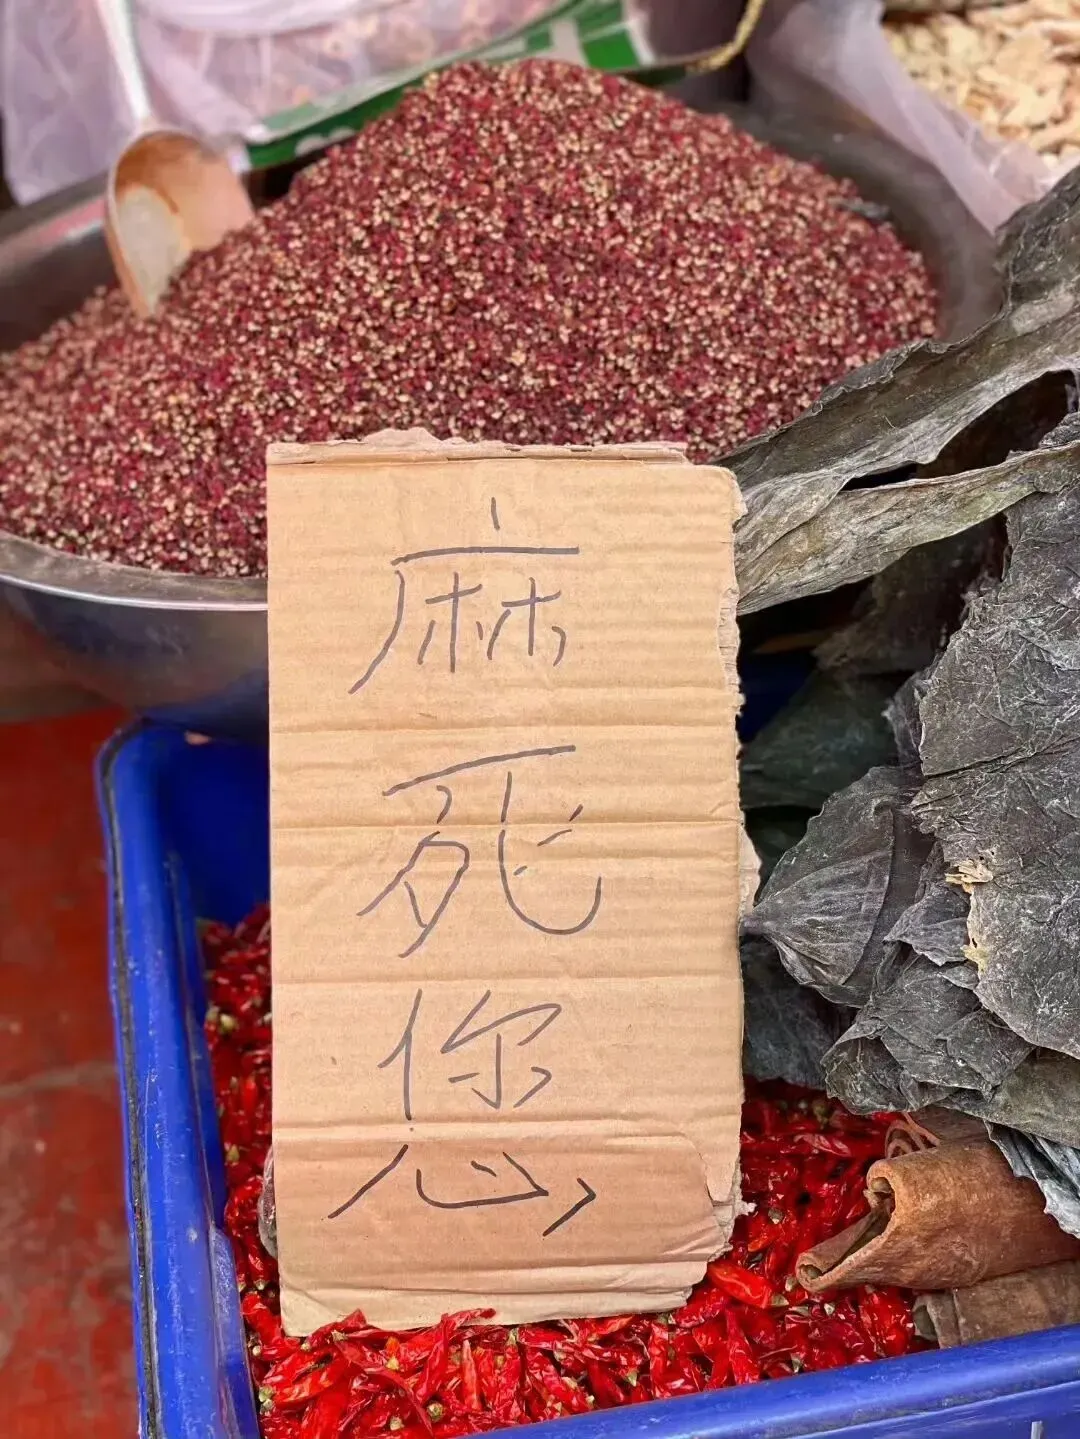 麻死您